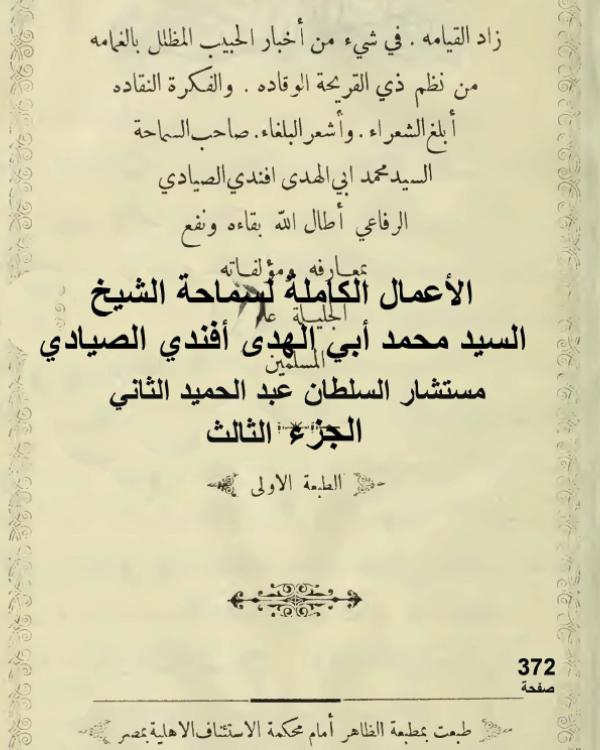 زاد القيامه . في شيء من أخبار الحبيب المظلل بالغمامه
من نظم ذي القريحة الوقاده . والفكرة النقاده
أبلغ الشعراء . وأشعر البلغاء . صاحب السماحة
السيد محمد ابي الهدى افندي الصيادي
الرفاعي أطال الله بقاءه ونفع
بمعارفه ومؤلفاته
الأعمال الكاملة لسماحة الشيخ
الجليلة
السيد محمد أبي الهدى أفندي الصيادي
المسلمين
مستشار السلطان عبد الحميد الثاني
الجزء الثالث
الطبعة الاولى
372
صفحة
طبعت بمطبعة الظاهر أمام محكمة الاستئناف الاهلية بمصر